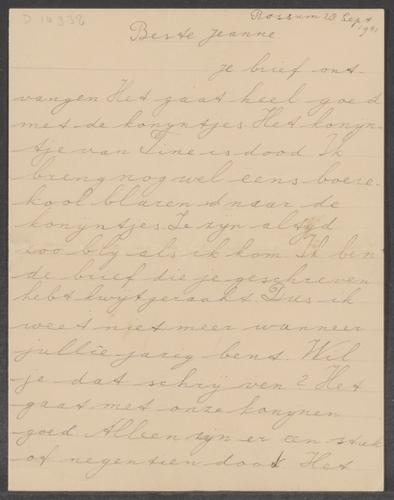 D 14338
Rossum 23 Sept
1941
Beste Jeanne
je brief ont-
vangen. Het gaat heel goed
met de konijntjes. Het konijn-
tje van Tine is dood. Ik
breng nog wel eens boere-
kool blaren naar de
konijntjes. Ze zijn altijd
zoo blij als ik kom. Ik ben
de brief die je geschreven
hebt kwijtgeraakt. Dus ik
weet niet meer wanneer
jullie jarig bent. Wil
je dat schrijven? Het
gaat met onze konijnen
goed. Alleen zijn er een stuk
of negentien dood. Het